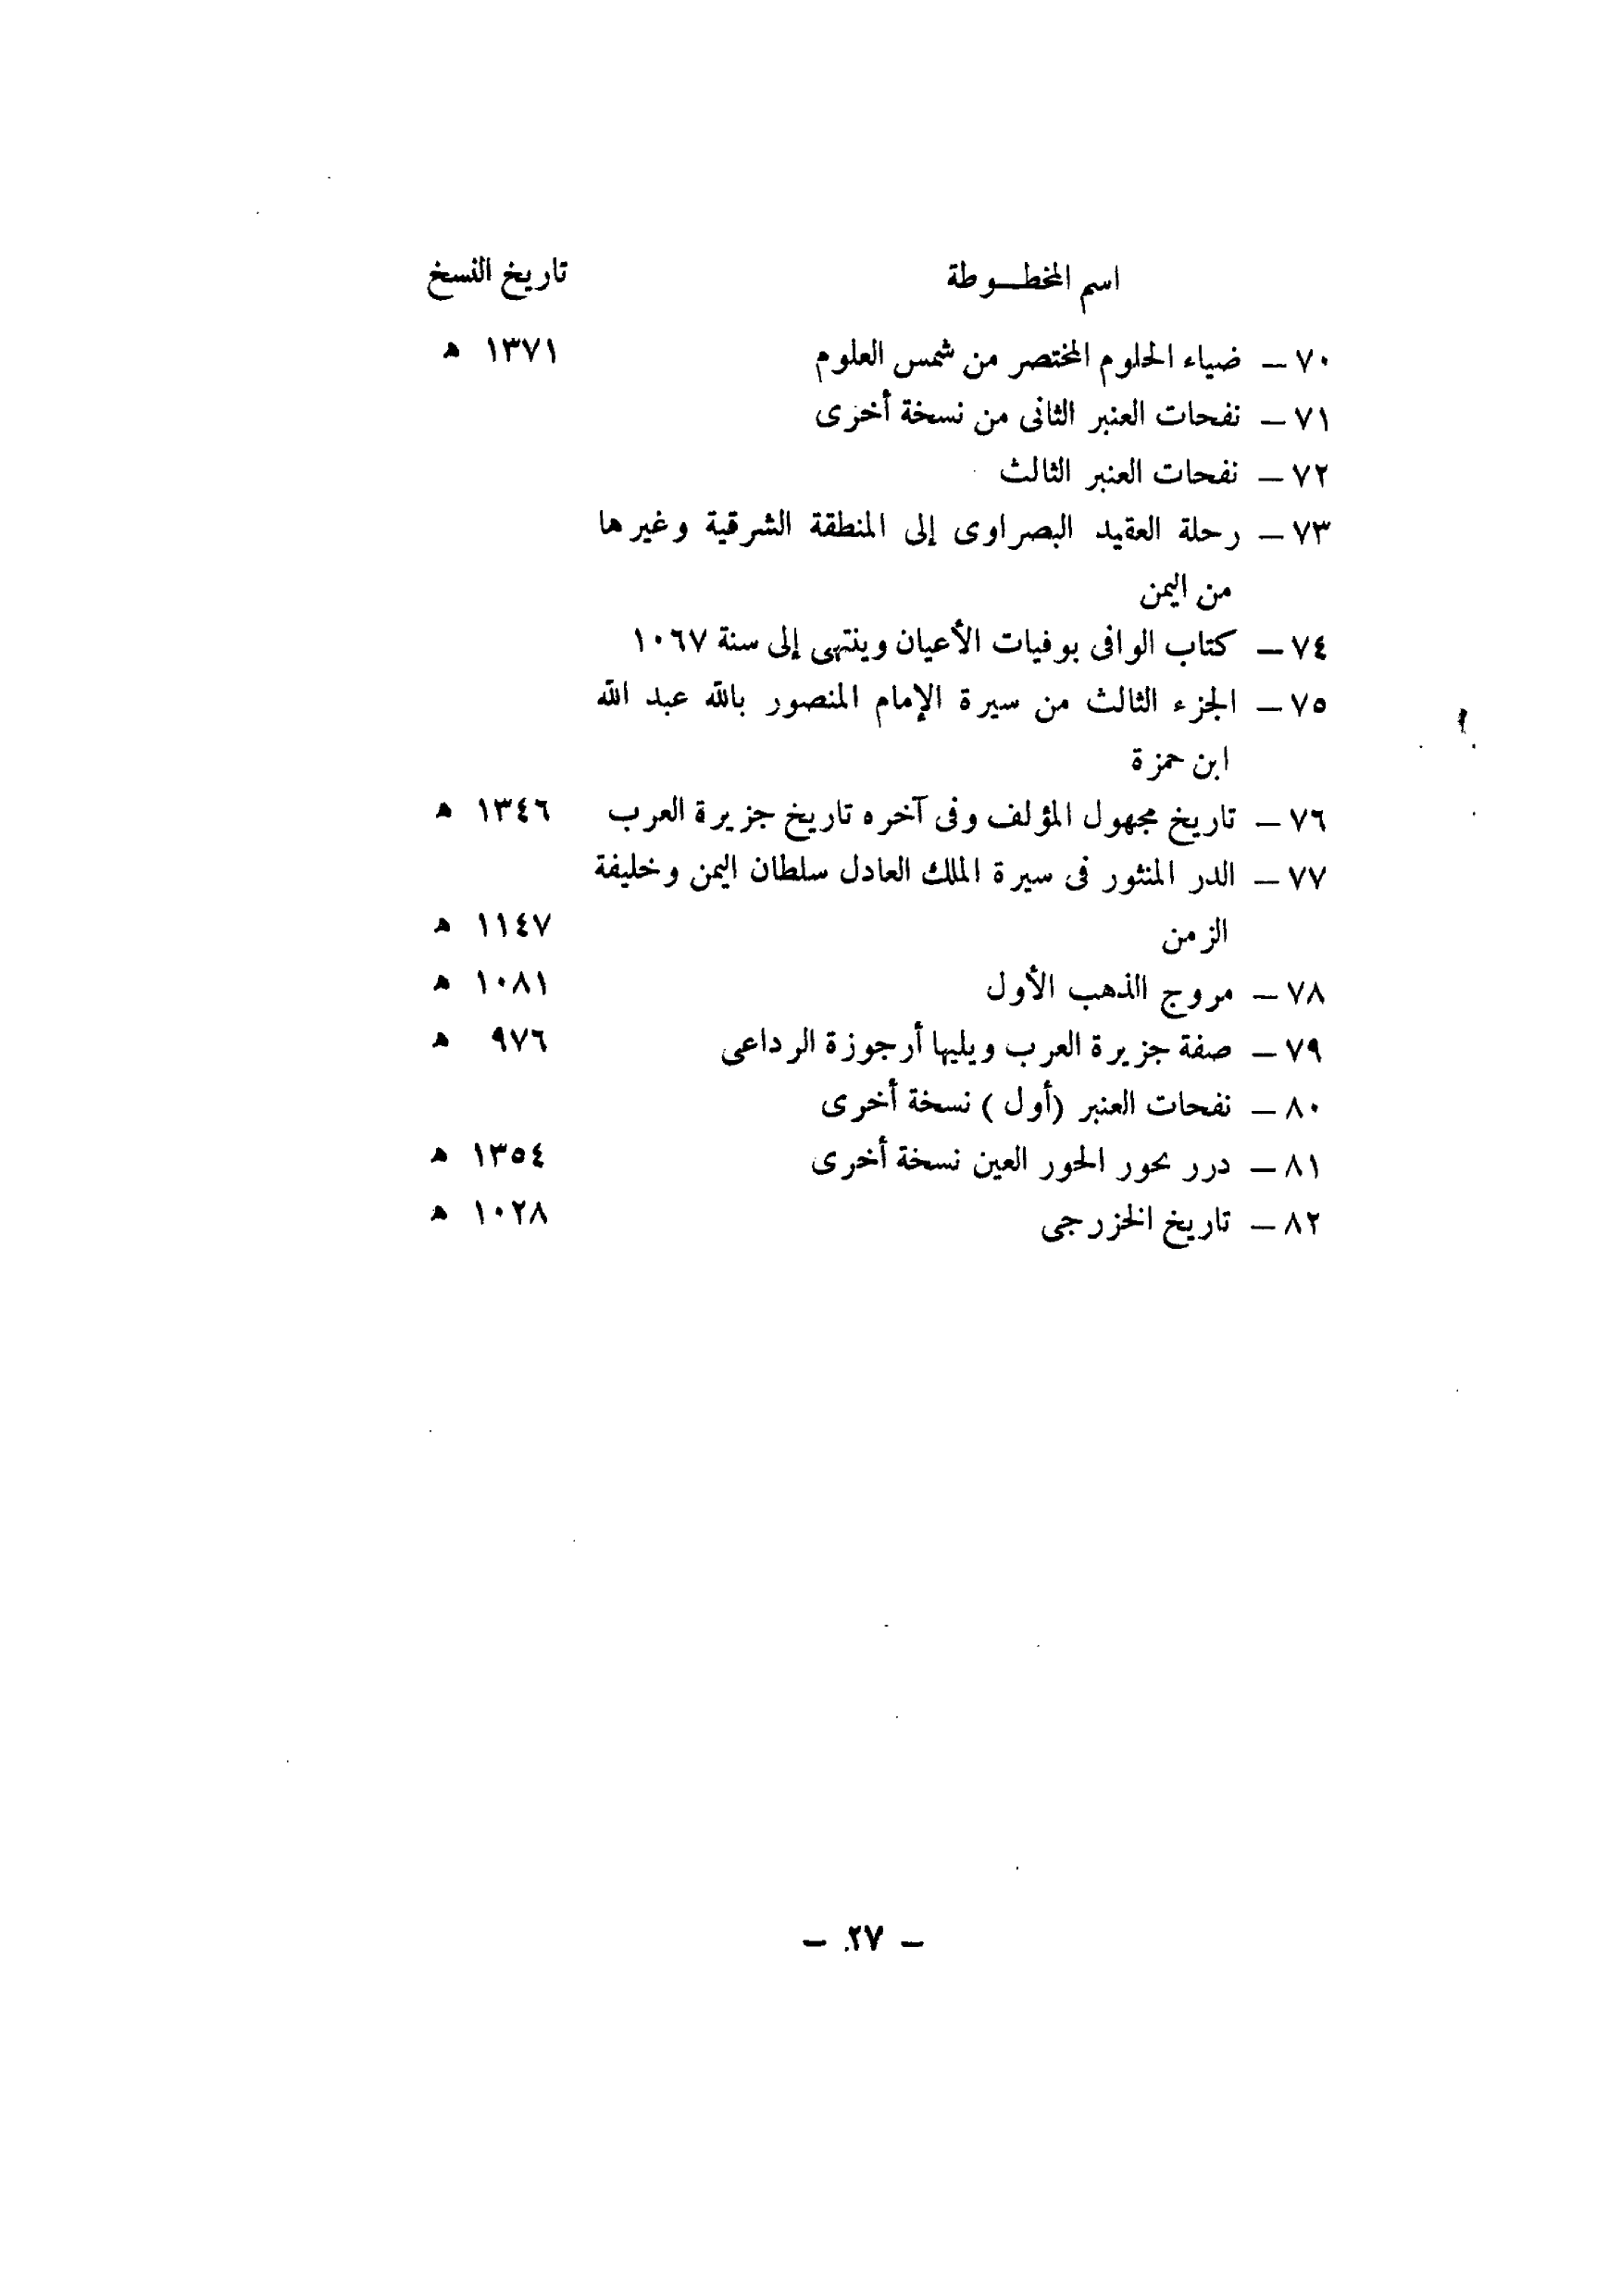 اسم المخطـوطة تاريخ النسخ
٧٠ – ضياء الحلوم المختصر من شمس العلوم ١٣٧١ ه
٧١ – نفحات العنبر الثانى من نسخة أخرى
٧٢ – نفحات العنبر الثالث
٧٣ – رحلة العقيد البصراوى إلى المنطقة الشرقية وغيرها
من اليمن
٧٤ – كتاب الوافى بوفيات الأعيان وينتهى إلى سنة ١٠٦٧
٧٥ – الجزء الثالث من سيرة الإمام المنصور بالله عبد الله
ابن حمزة
٧٦ – تاريخ مجهول المؤلف وفى آخره تاريخ جزيرة العرب ١٣٤٦ ه
٧٧ – الدر المنثور فى سيرة الملك العادل سلطان اليمن وخليفة
الزمن ١١٤٧ ه
٧٨ – مروج الذهب الأول ١٠٨١ ه
٧٩ – صفة جزيرة العرب ويليها أرجوزة الرداعى ٩٧٦ ه
٨٠ – نفحات العنبر (أول) نسخة أخرى
٨١ – درر نحور الحور العين نسخة أخرى ١٣٥٤ ه
٨٢ – تاريخ الخزرجى ١٠٢٨ ه
– ٢٧ –